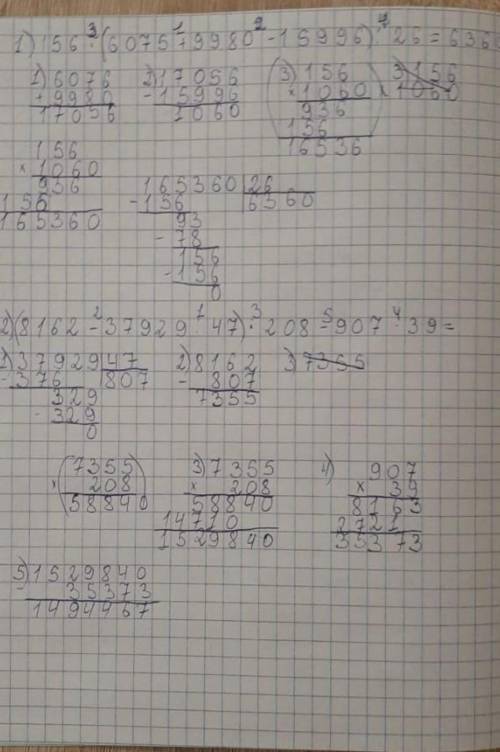 1) 156 · (6075 + 9980 - 15996) : 26 = 636
1) 6076 2) 17056 3) 156 3) 156
+ 9980 - 15996 × 1060 × 1060
17056 1060 936
156
16536
156
× 1060
936 165360 | 26
156 - 156 | 6360
165360 93
- 78
156
- 156
0
2) (8162 - 37929 : 47) · 208 - 907 · 39 =
1) 37929 | 47 2) 8162 3) 7355
- 376 | 807 - 807
329 7355
- 329
0
(7355) 3) 7355 4) 907
× 208 × 208 × 39
58840 58840 8163
14710 2721
1529840 35373
5) 1529840
- 35373
1494467